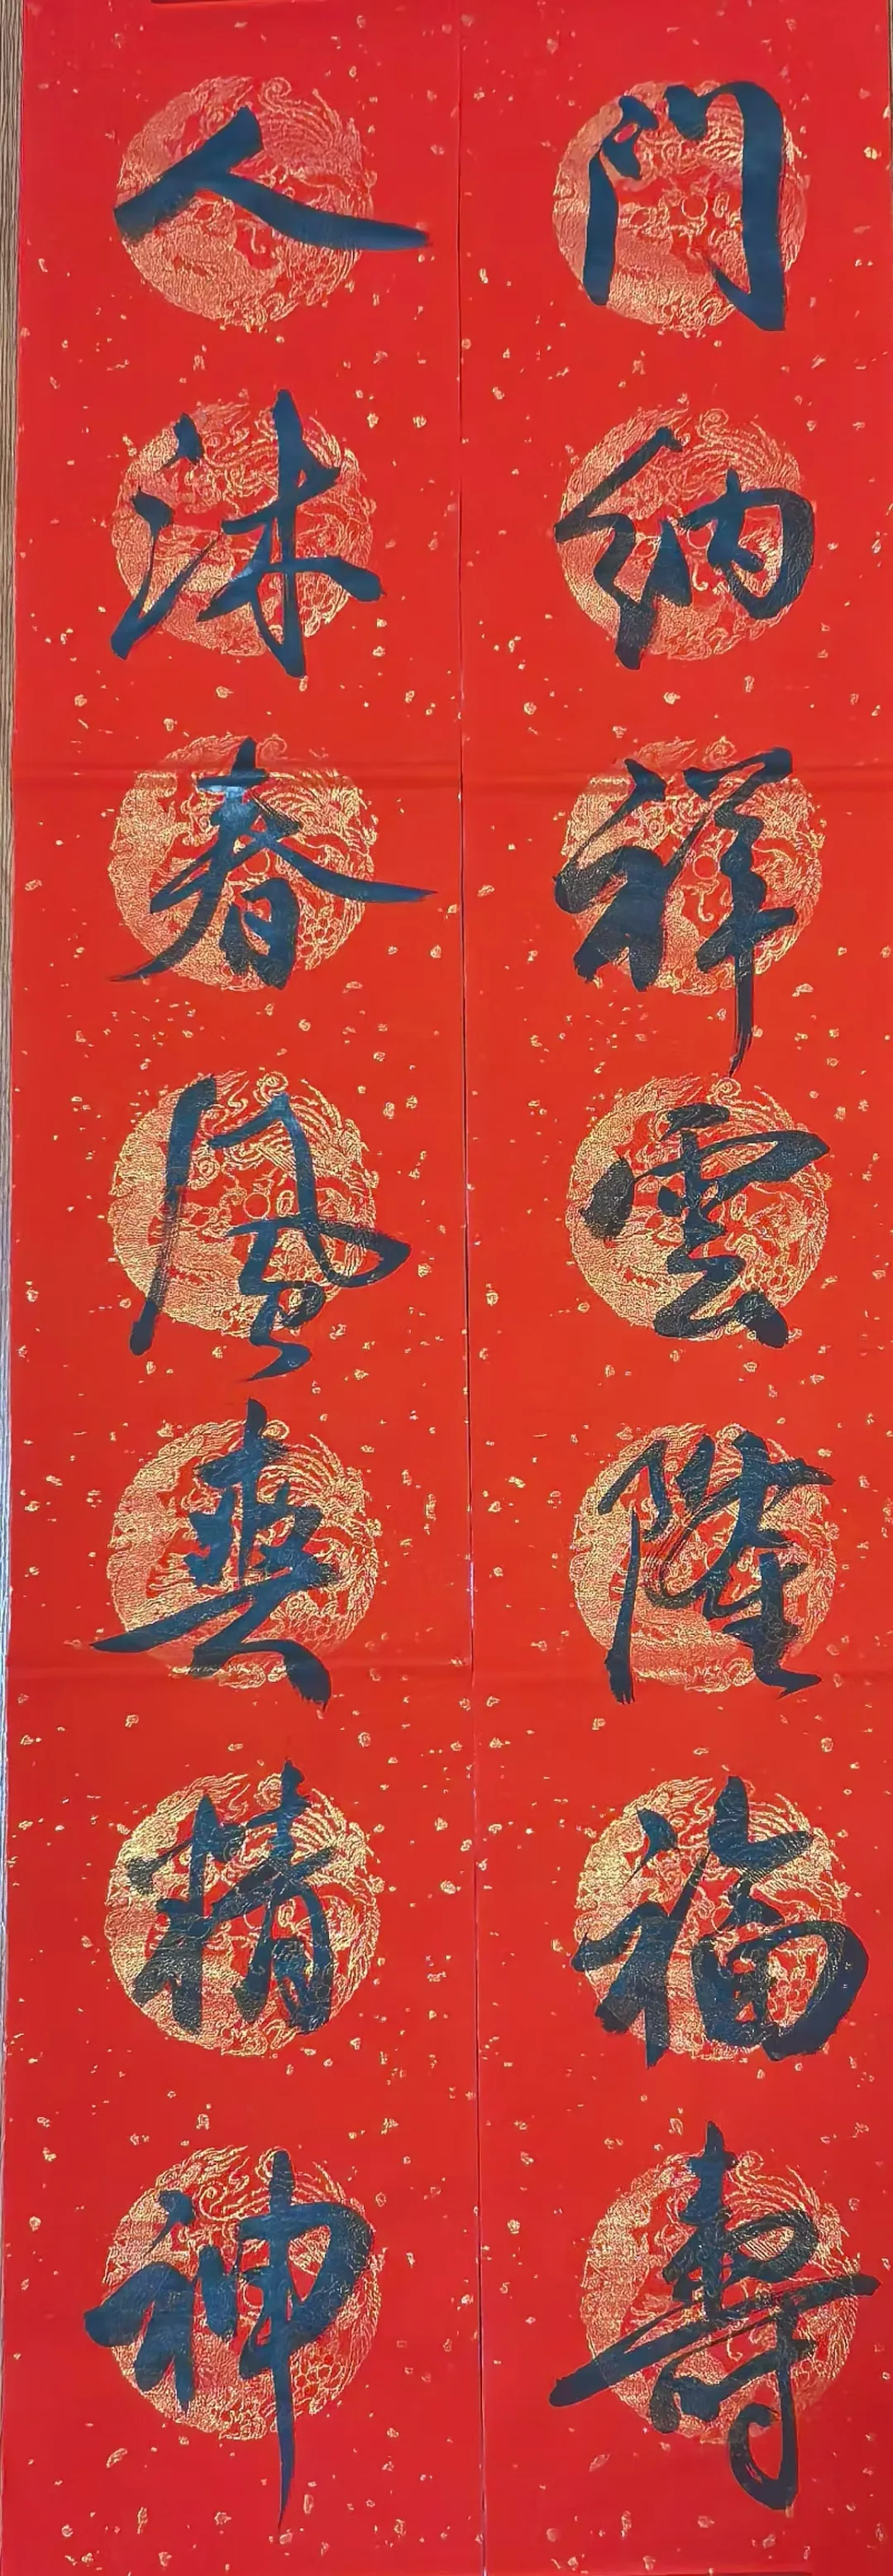 門納祥雲陞福壽
人沐春風爽精神